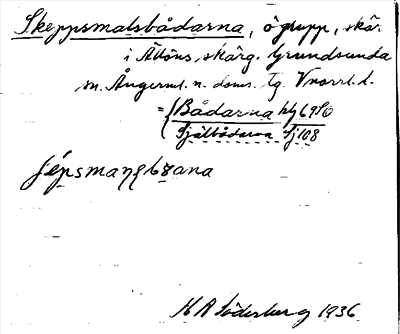 Skeppsmalsbådarna, ögrupp, skär
i Ättöns skärg. Grundsunda
sn. Ångerml. n. doms. tg. Vnorrl. l.
= { Bådarna hlg 69 SO
Själbådarna Sj 108
H A Söderberg 1936